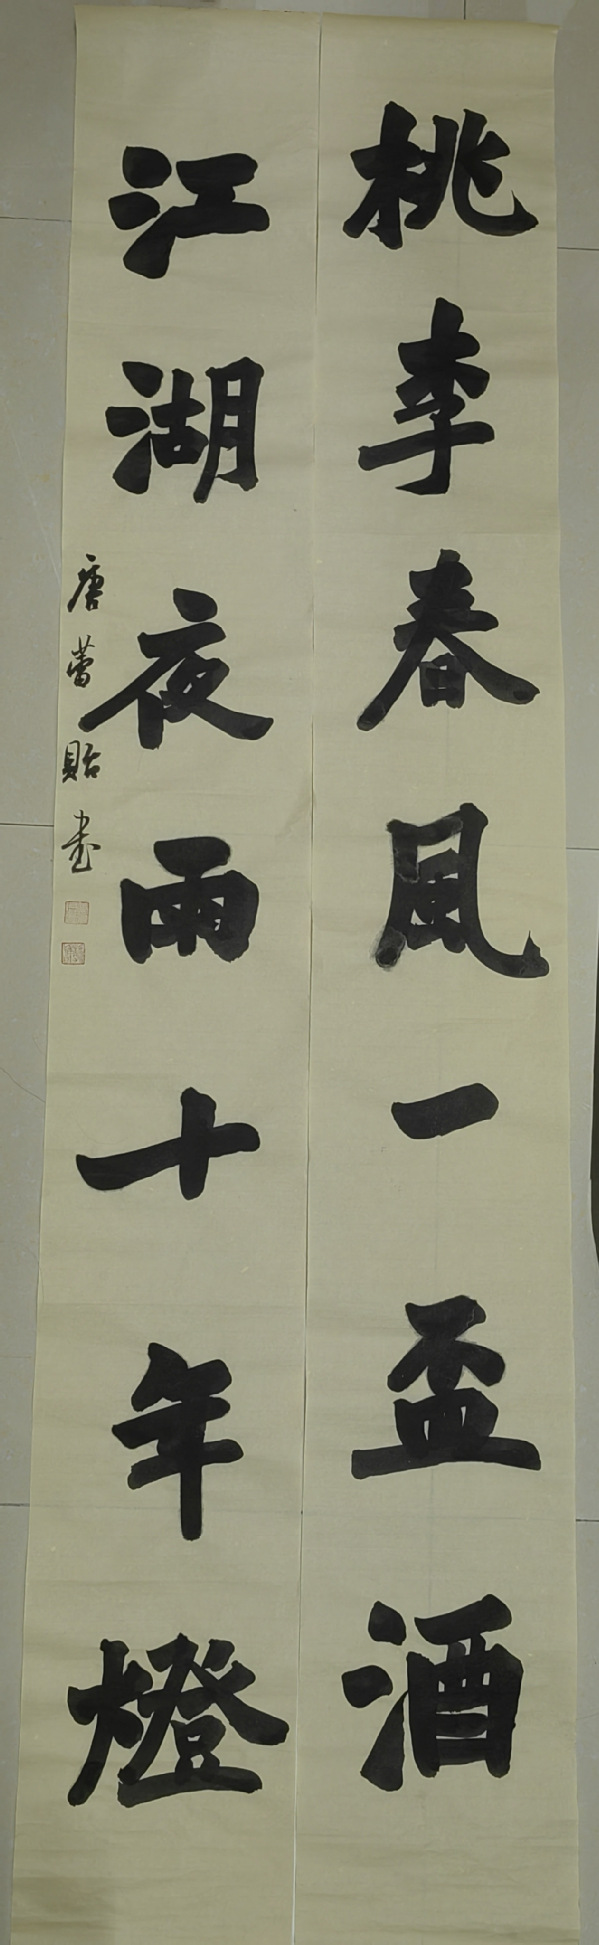 桃李春風一盃酒
江湖夜雨十年燈
唐蕾貽書